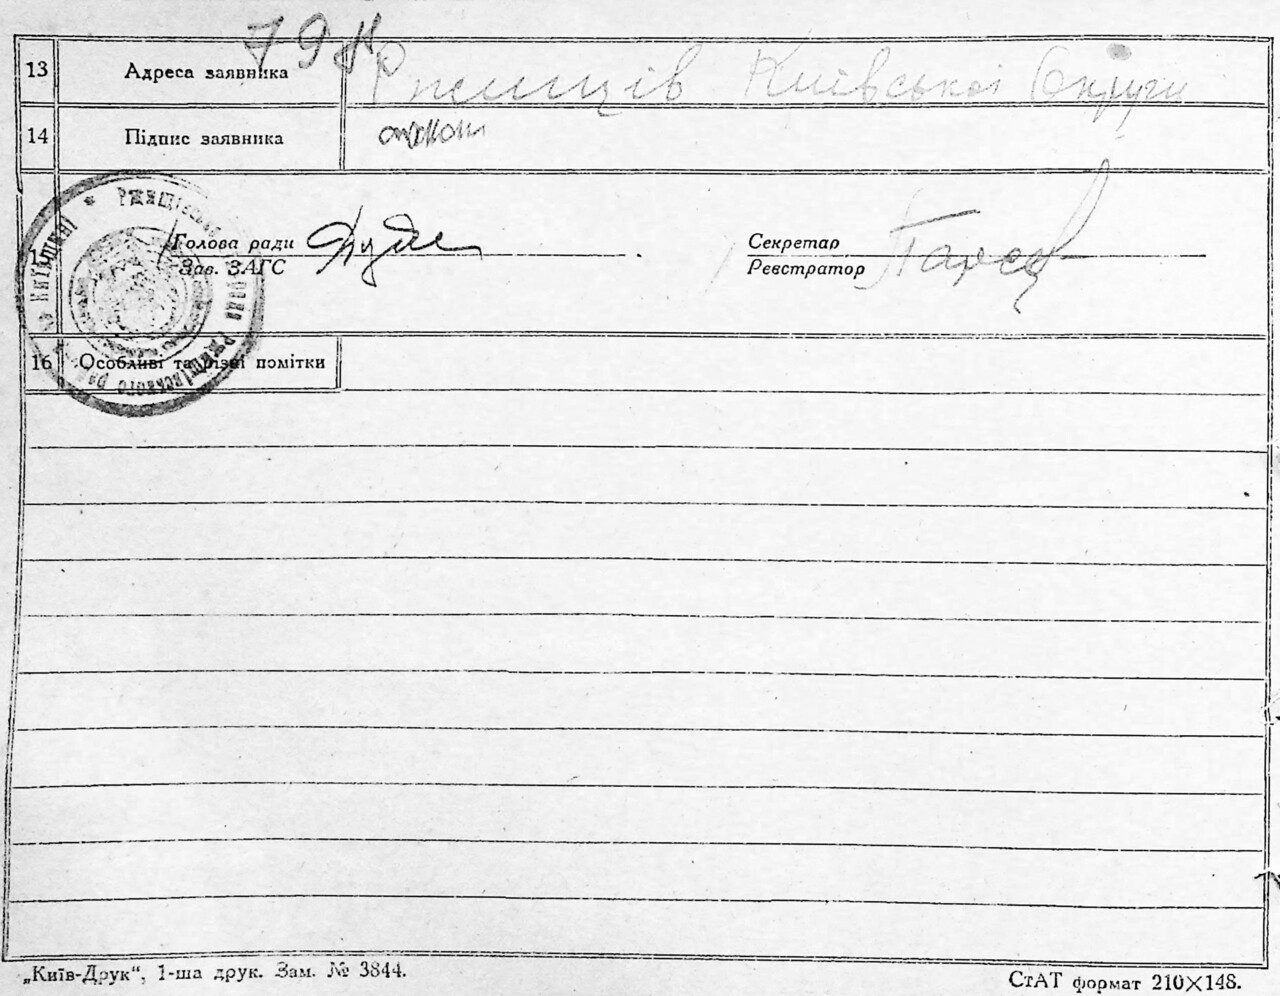 79
13 Адреса заявника Ржищів Київської Округи
14 Підпис заявника
15 Голова ради Секретар
Зав. ЗАГС Реєстратор
16 Особливі та різні помітки
„Київ-Друк“, 1-ша друк. Зам. № 3844.
СтАТ формат 210×148.